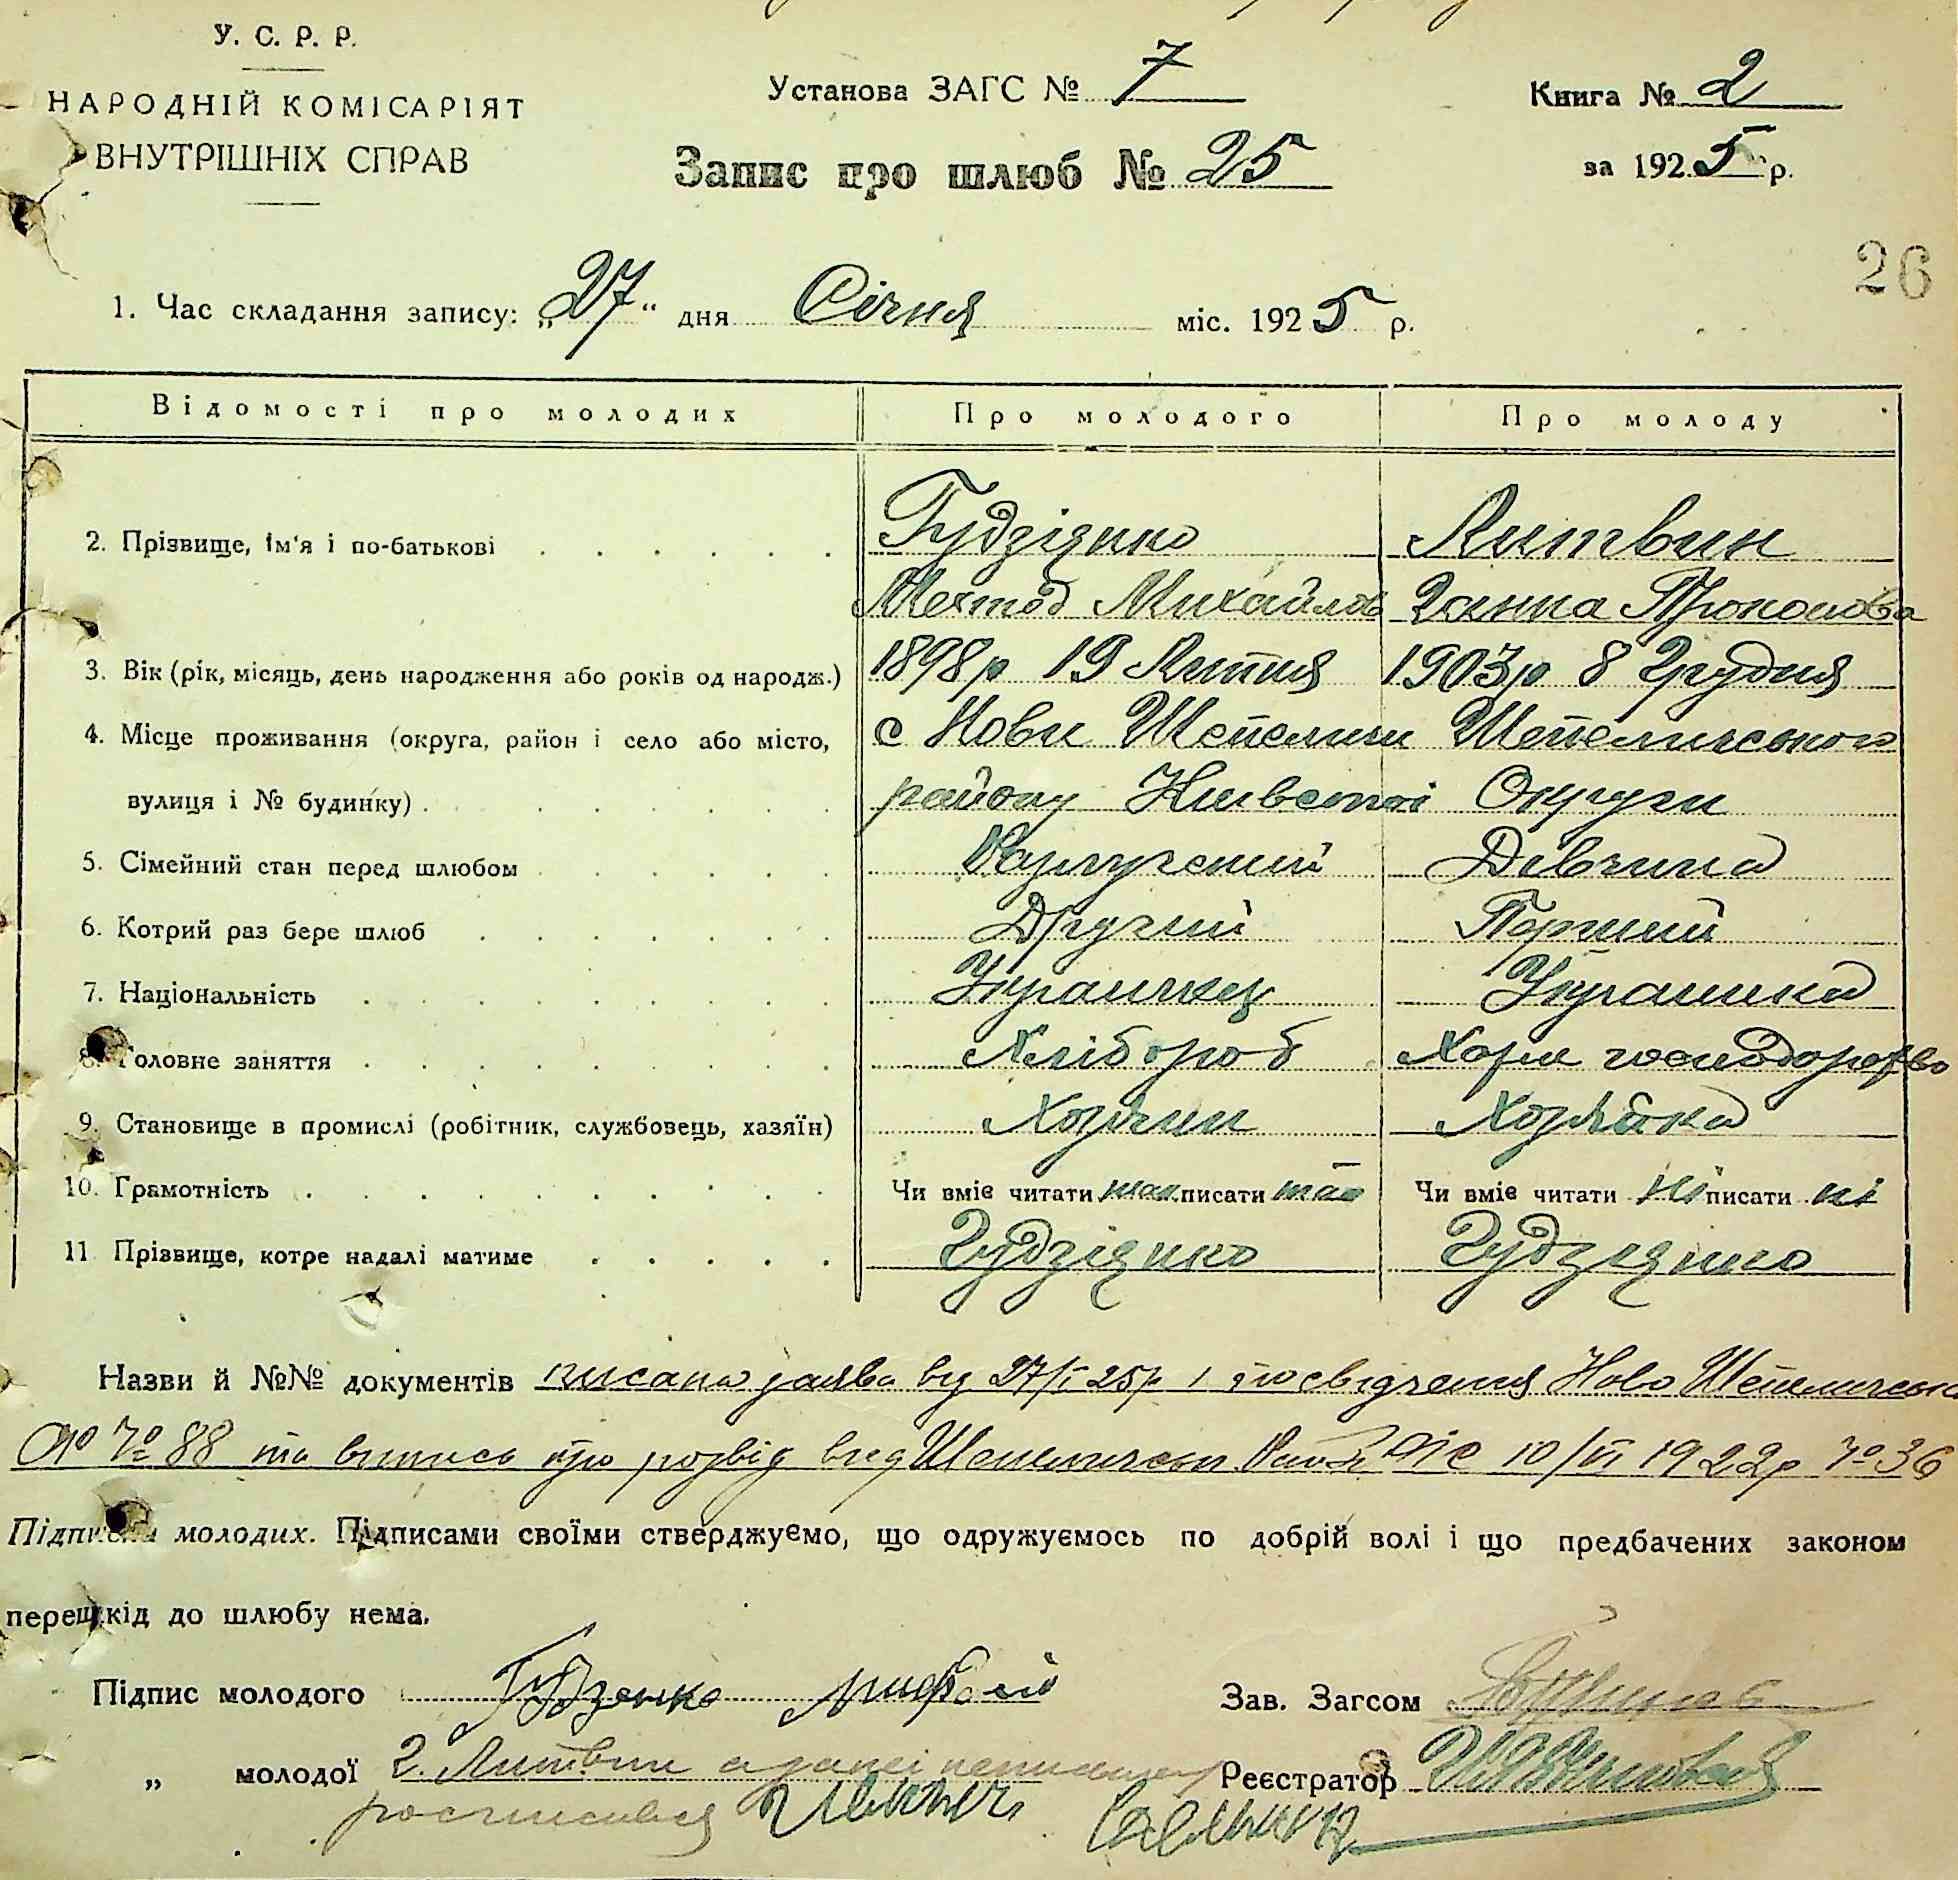 У. С. Р. Р.
НАРОДНІЙ КОМІСАРІЯТ
ВНУТРІШНІХ СПРАВ
Установа ЗАГС № 7
Запис про шлюб № 25
Книга № 2
за 1925 р.
26
1. Час складання запису: „27“ дня Січня міс. 1925 р.
Відомості про молодих Про молодого Про молоду
2. Прізвище, ім'я і по-батькові Гудзіднко Литвин
Михайлов Ганна Прокопова
3. Вік (рік, місяць, день народження або років од народж.) 1898р 19 Липня 1903р 8 Грудня
4. Місце проживання (округа, район і село або місто, с Нови Шепеличи Шепелического
вулиця і № будинку) району Киівської Округи
5. Сімейний стан перед шлюбом Разлучений Дівчина
6. Котрий раз бере шлюб Другий Перший
7. Національність Украинец Украинка
8. Головне заняття Хлібороб Хазя господарство
9. Становище в промислі (робітник, службовець, хазяїн) Хозяин Хозяйка
10. Грамотність Чи вміє читати так писати так Чи вміє читати ні писати ні
11 Прізвище, котре надалі матиме Гудзіднко Гудзиднко
Назви й №№ документів писана заява від 27/I 25р і посвідчення Ново Шепеличська
№ 88 та випись про розвід від Шепелическ 10/VI 1922р № 36
Підписи молодих. Підписами своїми стверджуємо, що одружуємось по добрій волі і що предбачених законом
перешкід до шлюбу нема.
Підпис молодого Гудзенко
Зав. Загсом
„ молодої Г. Литвин а за неі
Реєстратор
росписився